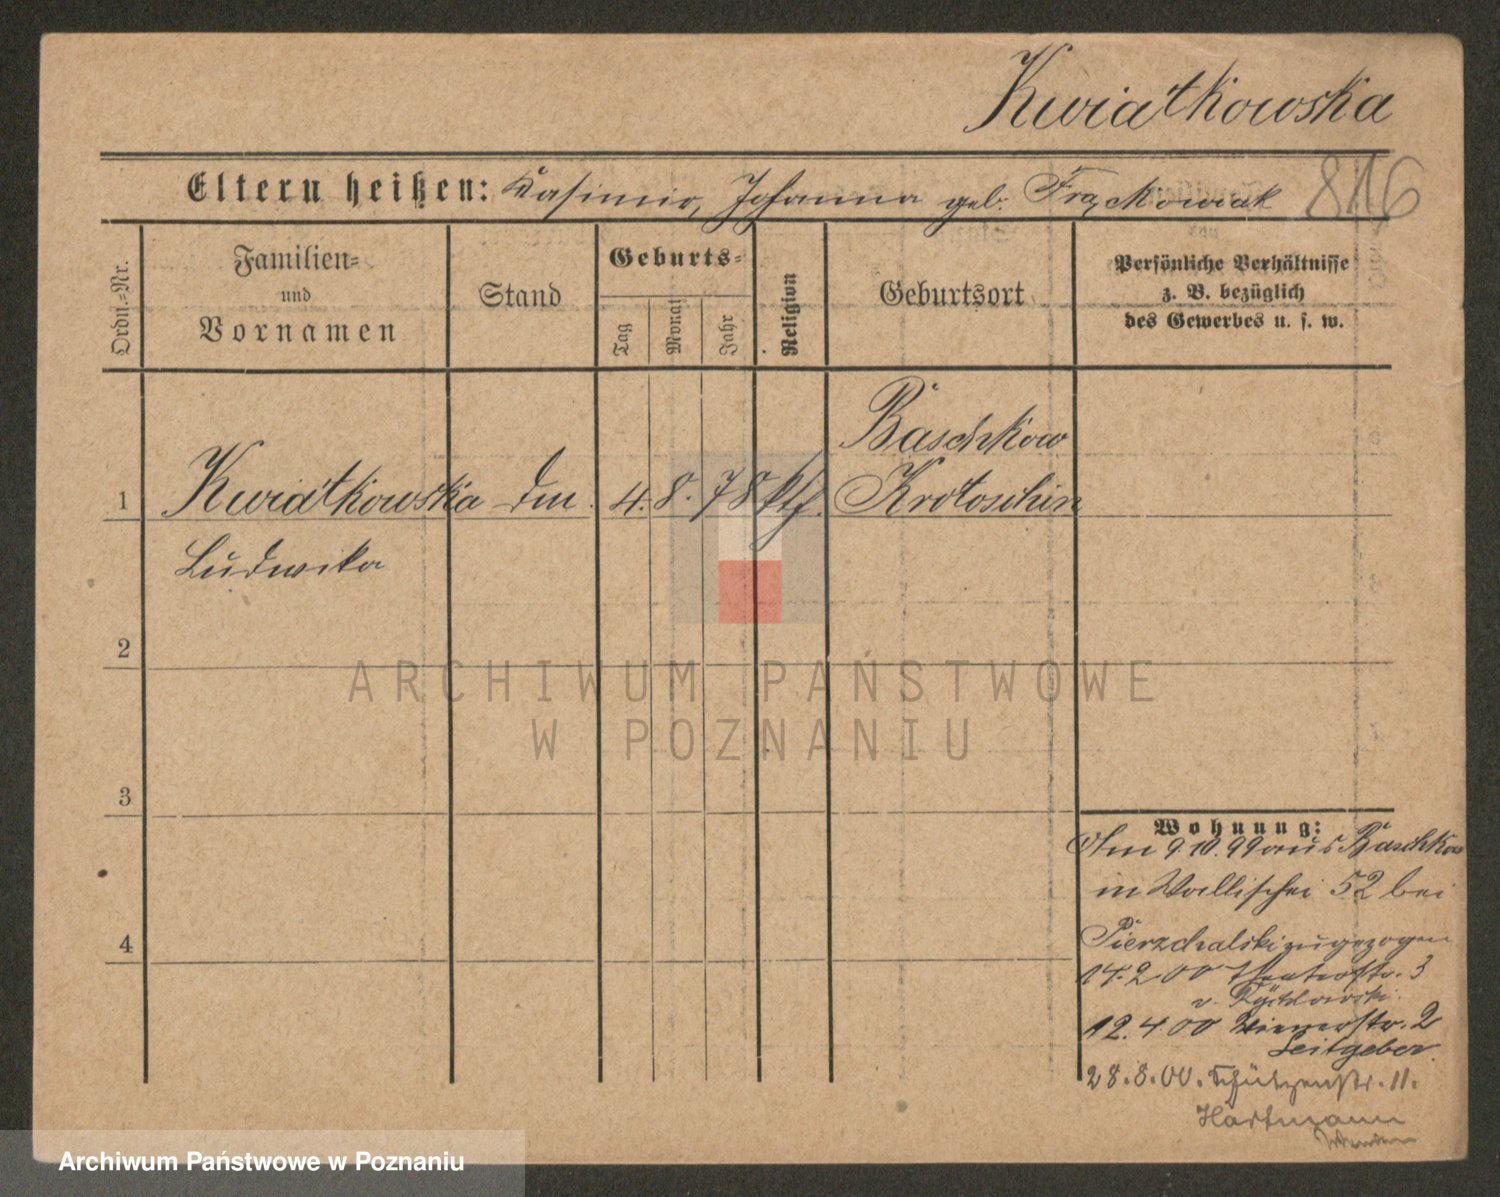 Kwiatkowska
Eltern heißen: Kasimir, Johanna geb. Frąckowiak 816
Ordn.-Nr.
Familien-
und
Vornamen
Stand
Geburts-
Tag
Monat
Jahr
Religion
Geburtsort
Persönliche Verhältnisse
z. B. bezüglich
des Gewerbes u. s. w.
Baschkow
1 Kwiatkowska 4. 8. 78 kth. Krotoschin
Ludwika
2
ARCHIWUM PAŃSTWOWE
W POZNANIU
3
Wohnung:
Am 9.10.99 aus Baschkow
in Wallischei 52 bei
Pierzchalski zugezogen
17.2.00 Theaterstr. 3
v.
4
12.4.00 Wienerstr. 2
Leitgeber.
28.8.00. Schützenstr. 11.
Hartmann
Archiwum Państwowe w Poznaniu